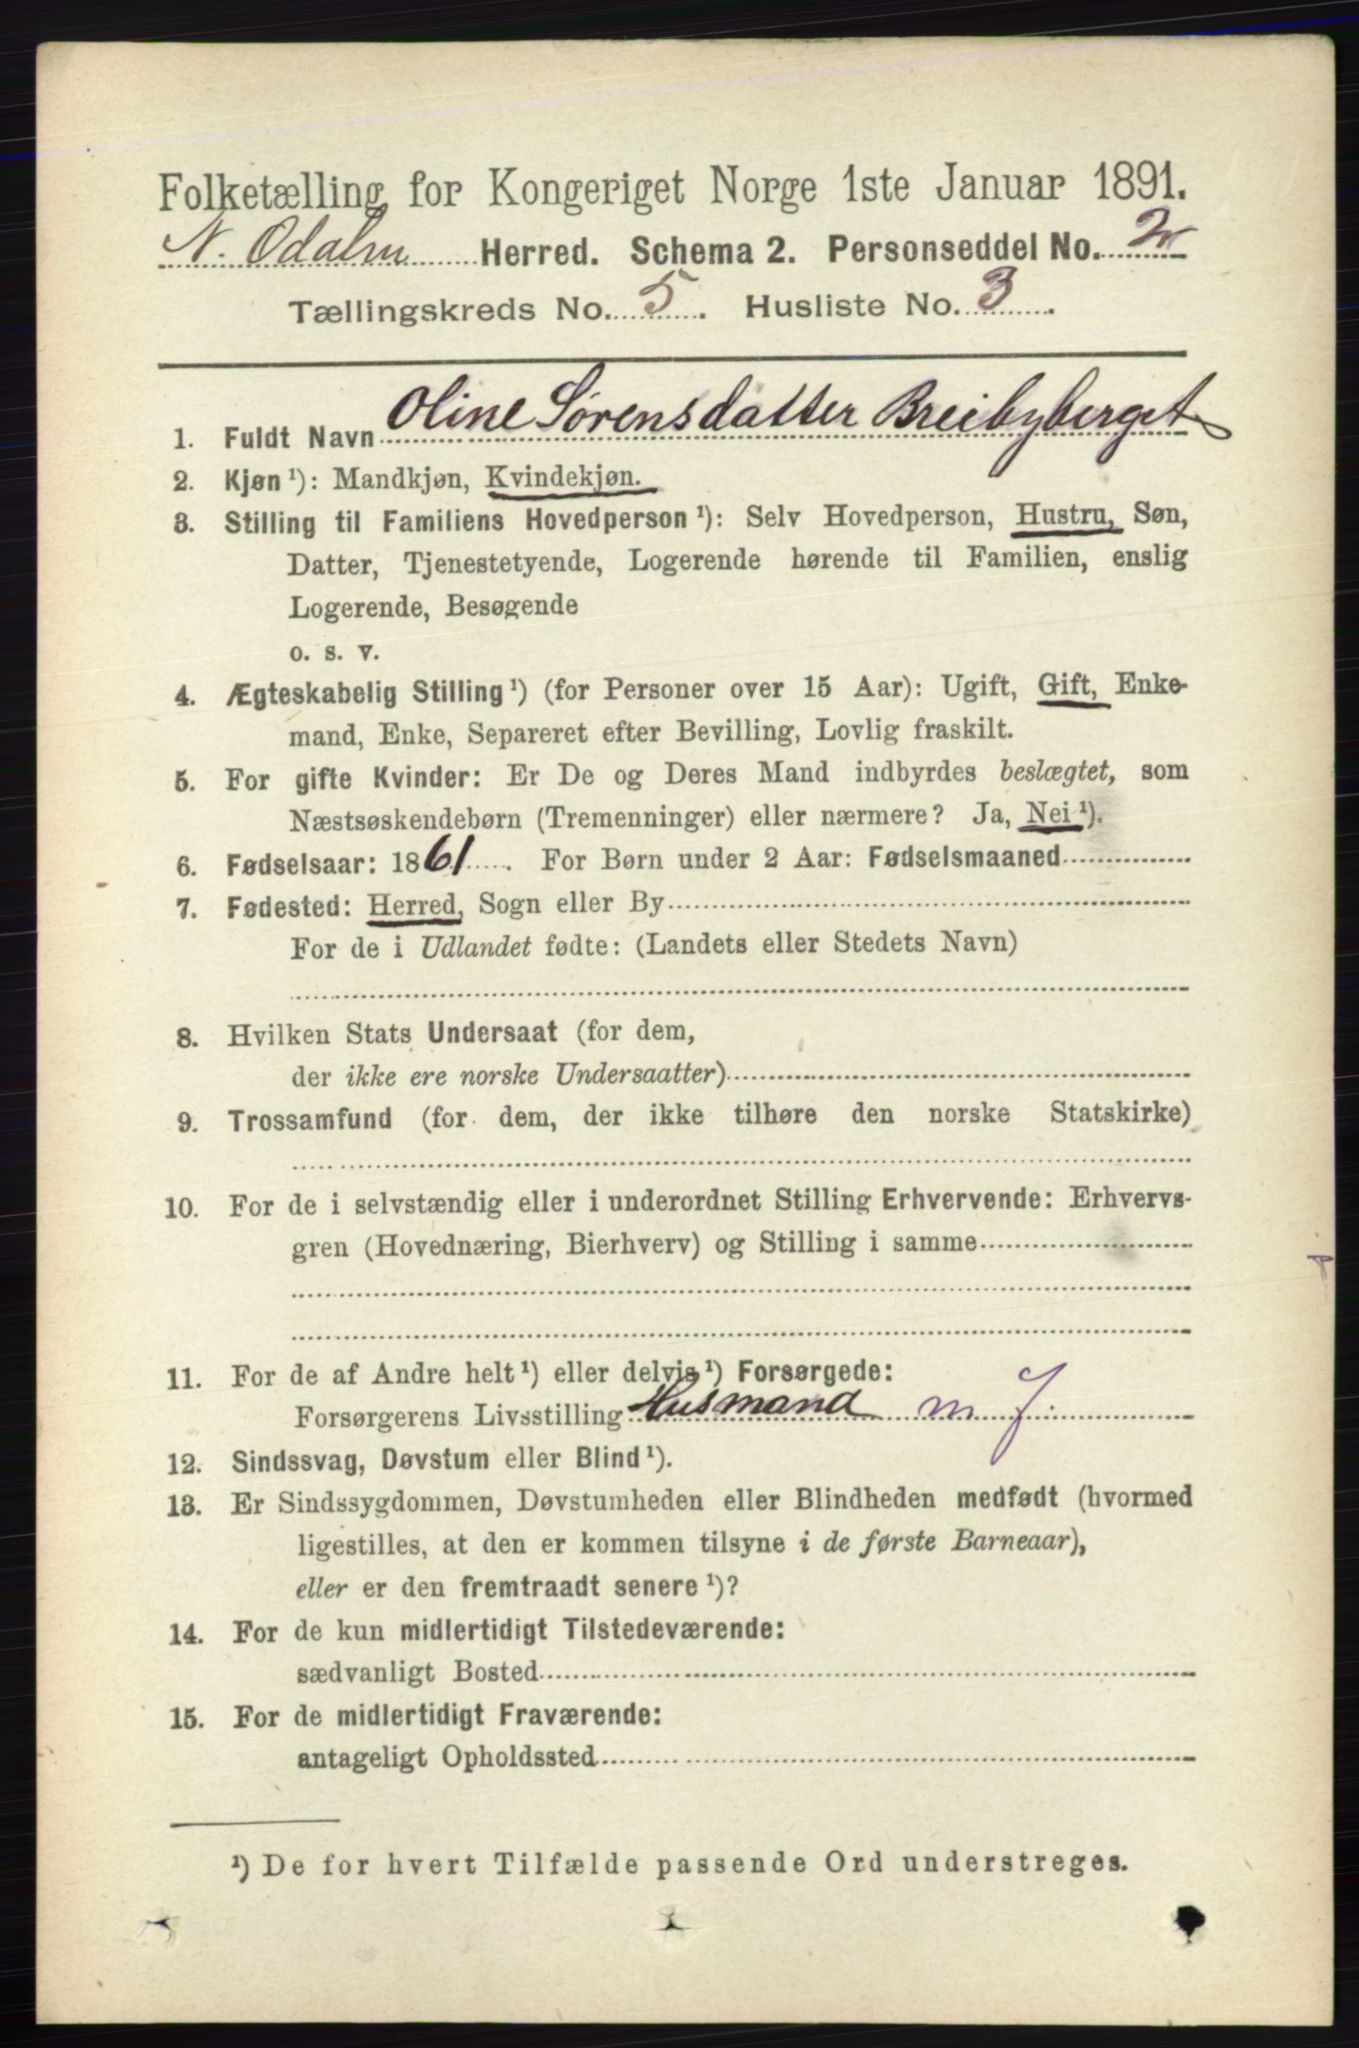 Folketælling for Kongeriget Norge 1ste Januar 1891.
N. Odalen Herred. Schema 2. Personseddel No. 2
Tællingskreds No. 5. Husliste No. 3.
1. Fuldt Navn Oline Sørensdatter Breibyberget
2. Kjøn ¹): Mandkjøn, Kvindekjøn.
3. Stilling til Familiens Hovedperson ¹): Selv Hovedperson, Hustru, Søn,
Datter, Tjenestetyende, Logerende hørende til Familien, enslig
Logerende, Besøgende
o. s. v.
4. Ægteskabelig Stilling ¹) (for Personer over 15 Aar): Ugift, Gift, Enke-
mand, Enke, Separeret efter Bevilling, Lovlig fraskilt.
5. For gifte Kvinder: Er De og Deres Mand indbyrdes beslægtet, som
Næstsøskendebørn (Tremenninger) eller nærmere? Ja, Nei ¹).
6. Fødselsaar: 1861. For Børn under 2 Aar: Fødselsmaaned
7. Fødested: Herred, Sogn eller By
For de i Udlandet fødte: (Landets eller Stedets Navn)
8. Hvilken Stats Undersaat (for dem,
der ikke ere norske Undersaatter)
9. Trossamfund (for dem, der ikke tilhøre den norske Statskirke)
10. For de i selvstændig eller i underordnet Stilling Erhvervende: Erhvervs-
gren (Hovednæring, Bierhverv) og Stilling i samme
11. For de af Andre helt ¹) eller delvis ¹) Forsørgede:
Forsørgerens Livsstilling Husmand m J.
12. Sindssvag, Døvstum eller Blind ¹).
13. Er Sindssygdommen, Døvstumheden eller Blindheden medfødt (hvormed
ligestilles, at den er kommen tilsyne i de første Barneaar),
eller er den fremtraadt senere ¹)?
14. For de kun midlertidigt Tilstedeværende:
sædvanligt Bosted
15. For de midlertidigt Fraværende:
antageligt Opholdssted
¹) De for hvert Tilfælde passende Ord understreges.